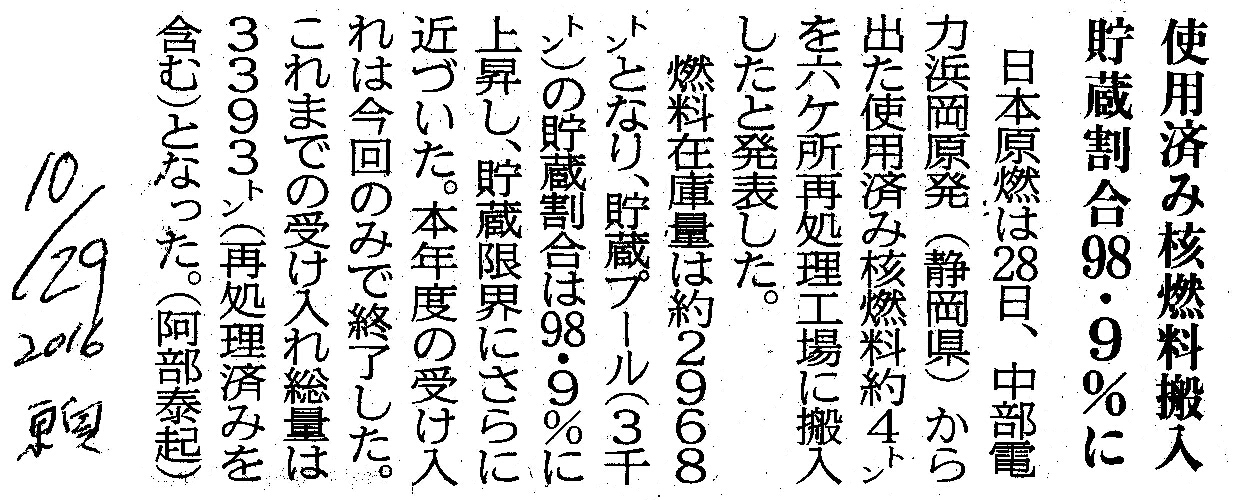 使用済み核燃料搬入
貯蔵割合98・9％に
日本原燃は28日、中部電
力浜岡原発（静岡県）から
出た使用済み核燃料約4㌧
を六ケ所再処理工場に搬入
したと発表した。
燃料在庫量は約2968
㌧となり、貯蔵プール（3千
㌧）の貯蔵割合は98・9％に
上昇し、貯蔵限界にさらに
近づいた。本年度の受け入
れは今回のみで終了した。
これまでの受け入れ総量は
3393㌧（再処理済みを
含む）となった。（阿部泰起）
10/29
2016
東奥